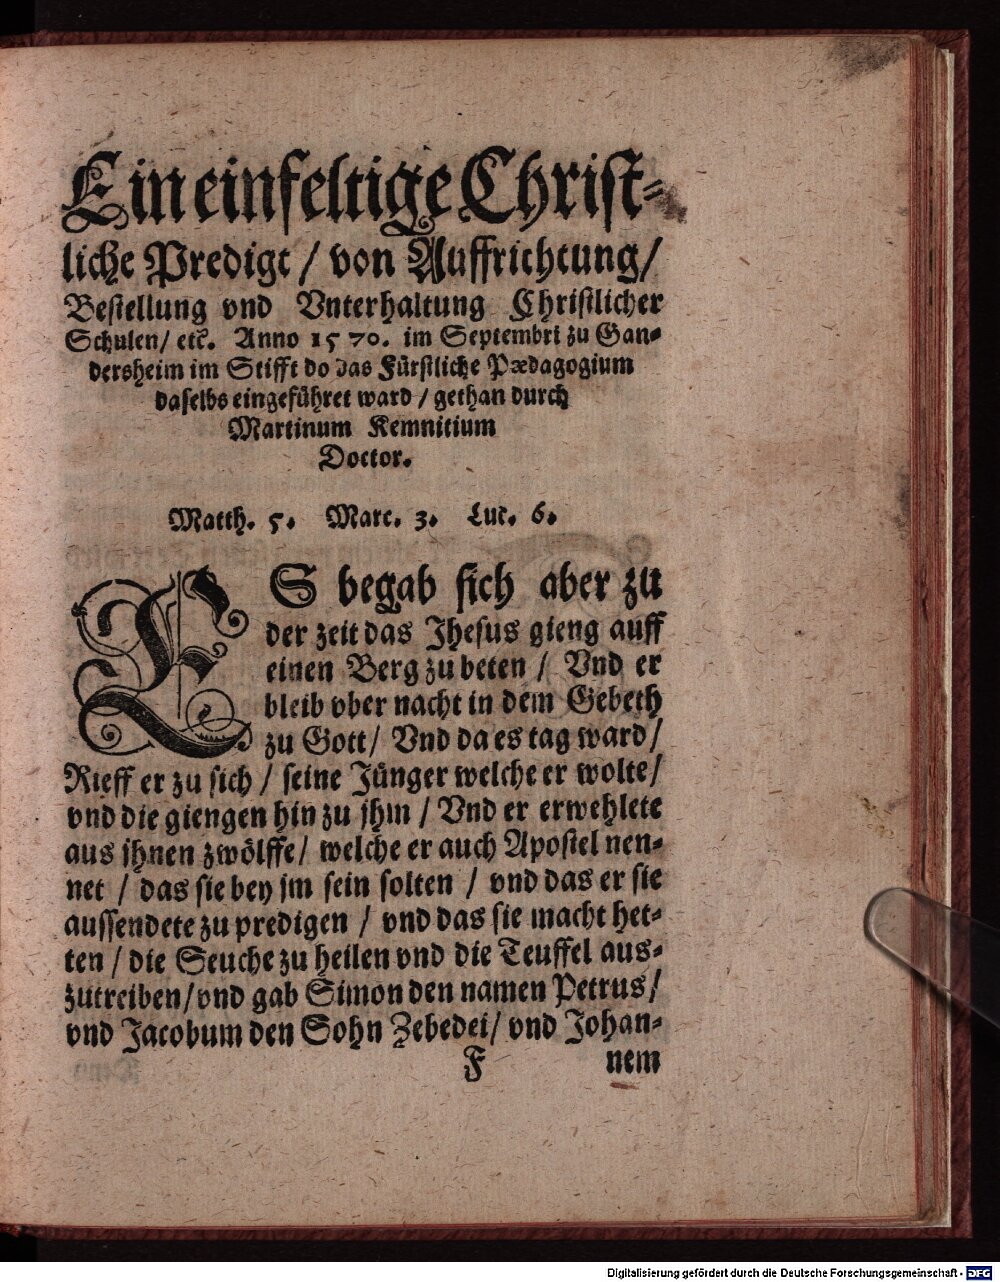 Ein einfeltige Christ-
liche Predigt / von Auffrichtung /
Bestellung vnd Vnterhaltung Christlicher
Schulen / etc. Anno 1570. im Septembri zu Gan-
dersheim im Stifft do das Fürstliche Pædagogium
daselbs eingeführet ward / gethan durch
Martinum Kemnitium
Doctor.
Matth. 5. Marc. 3. Luc. 6.
ES begab sich aber zu
der zeit das Jhesus gieng auff
einen Berg zu beten / Vnd er
bleib vber nacht in dem Gebeth
zu Gott / Vnd da es tag ward /
Rieff er zu sich / seine Jünger welche er wolte /
vnd die giengen hin zu jhm / Vnd er erwehlete
aus jhnen zwölffe / welche er auch Apostel nen-
net / das sie bey jm sein solten / vnd das er sie
aussendete zu predigen / vnd das sie macht het-
ten / die Seuche zu heilen vnd die Teuffel aus-
zutreiben / vnd gab Simon den namen Petrus /
vnd Jacobum den Sohn Zebedei / vnd Johan-
F nem
Digitalisierung gefördert durch die Deutsche Forschungsgemeinschaft - DFG